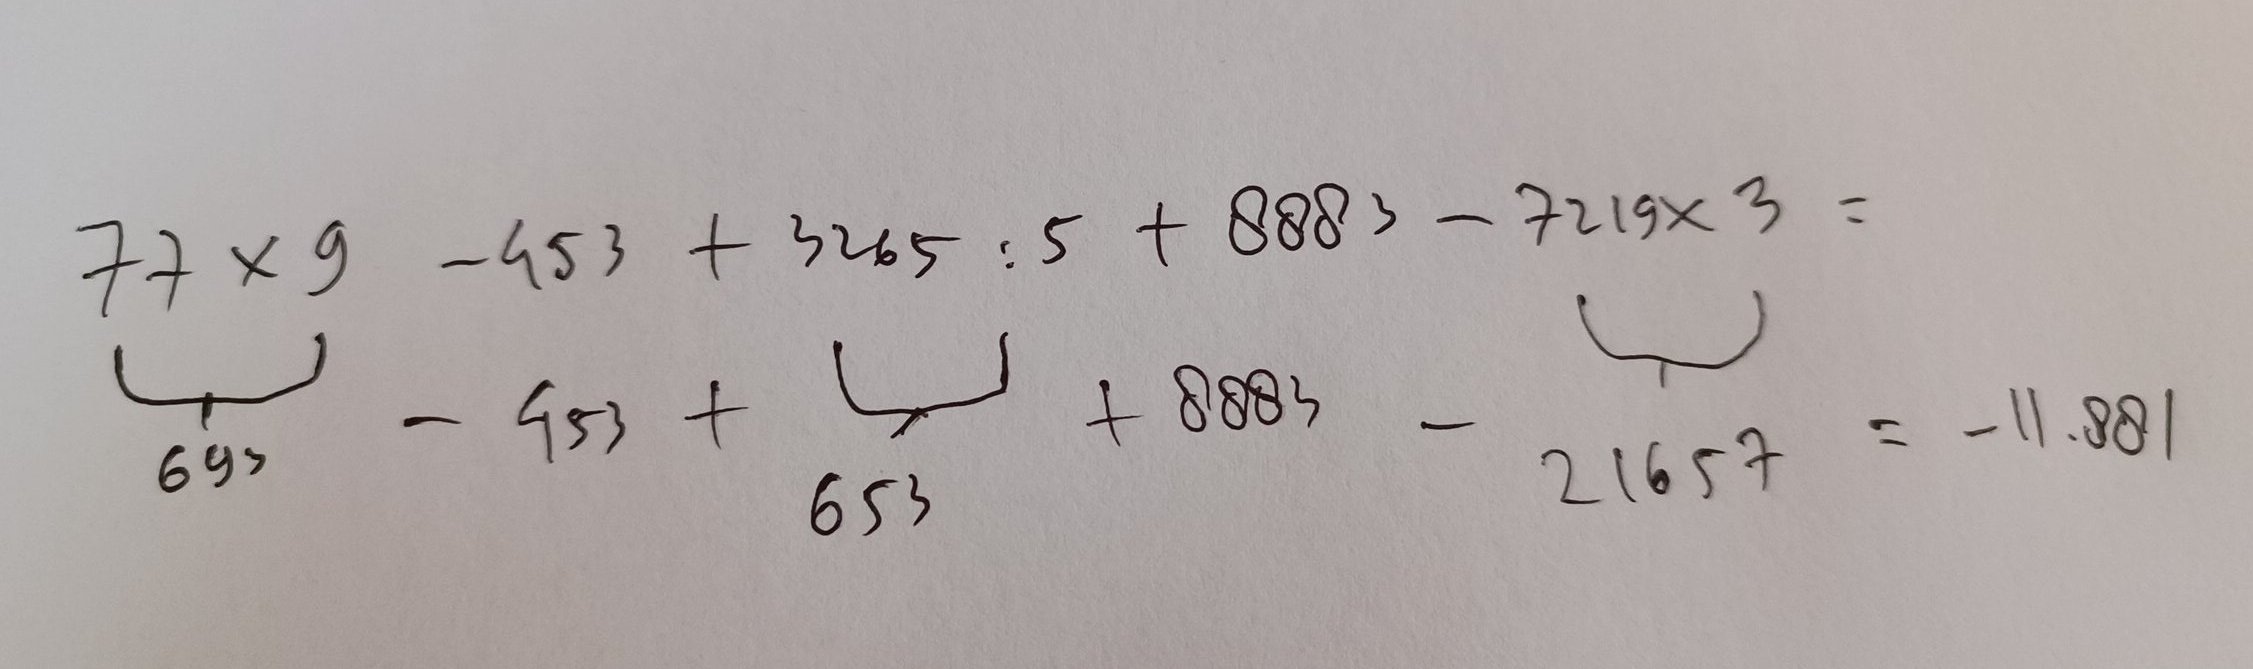 77 x 9 - 453 + 3265 : 5 + 8883 - 7219 x 3 =
693 - 453 + 653 + 8883 - 21657 = -11.881